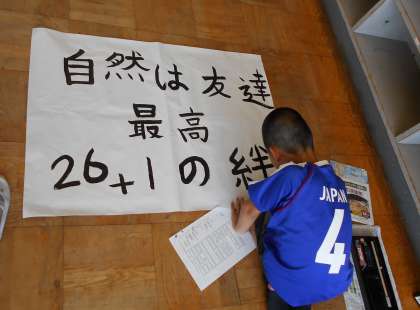 自然は友達
最高
26+1の絆
JAPAN
4